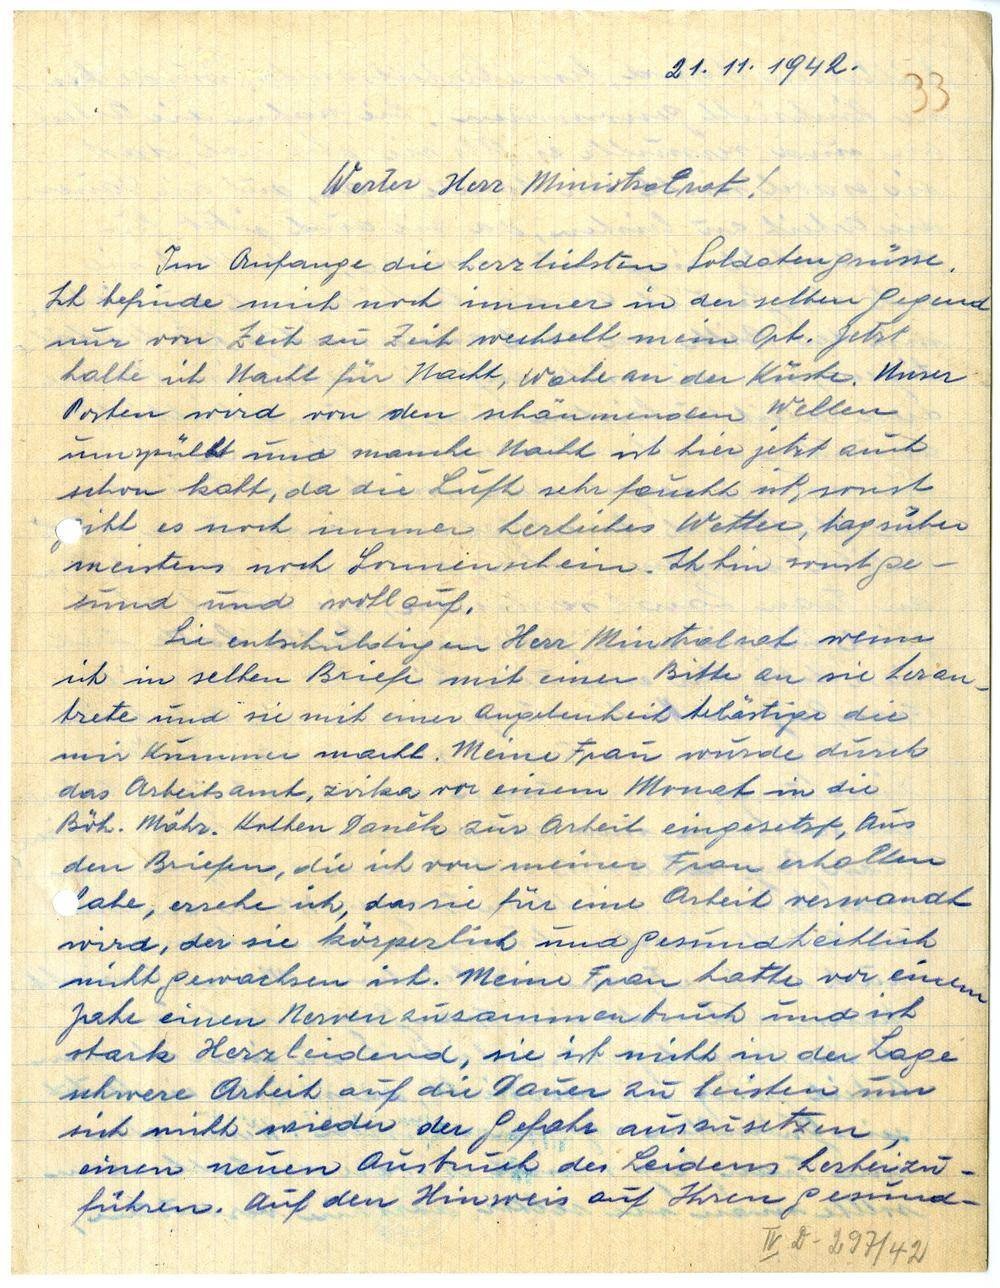 21. 11. 1942.
33
Werter Herr Ministralrat!
Im Anfange die herzlichsten Soldatengrüsse.
Ich befinde mich noch immer in der selben Gegend
nur von Zeit zu Zeit wechselt mein Ort. Jetzt
halte ich Nacht für Nacht, Wache an der Küste. Unser
Posten wird von den schäumenden Wellen
umspühlt und manche Nacht ist hier jetzt auch
schon kalt, da die Luft sehr feucht ist, sonst
gibt es noch immer herliches Wetter, tagsüber
meistens noch Sonnenschein. Ich bin sonst ge-
sund und wollauf.
Sie entschuldigen Herr Mintralrat wenn
ich in selben Briefe mit einer Bitte an sie heran-
trete und sie mit einer Angelenheit belästige die
mir Kummer macht. Meine Frau wurde durch
das Arbeitsamt, zirka vor einem Monat in die
Böh. Mähr. Kolben Daněk zur Arbeit eingesetzt, Aus
den Briefen, die ich von meiner Frau erhalten
habe, ersehe ich, das sie für eine Arbeit verwandt
wird, der sie körperlich und gesundheitlich
nicht gewachsen ist. Meine Frau hatte vor einem
Jahe einen Nervenzusammenbruch und ist
stark Herzleidend, sie ist nicht in der Lage
schwere Arbeit auf die Dauer zu leisten um
sich nicht wieder der Gefahr auszusetzen,
einen neuen Ausbruch des Leidens herbeizu-
führen. Auf den Hinweis auf Ihren gesund-
IV D - 297/42